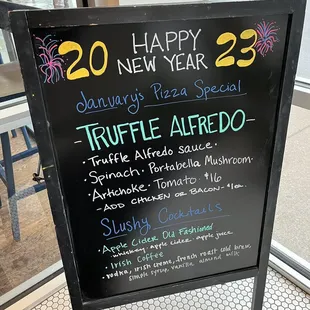 20 HAPPY NEW YEAR 23
January's Pizza Special
-TRUFFLE ALFREDO-
• Truffle Alfredo sauce •
Spinach • Portabella Mushroom •
Artichoke • Tomato • $16
- ADD CHICKEN OR BACON -
Slushy Cocktails
• Apple Cider Old Fashioned
- whiskey, apple cider, apple juice
• Irish Coffee
- vodka, irish creme, french roast cold brew
simple syrup, vanilla, almond milk